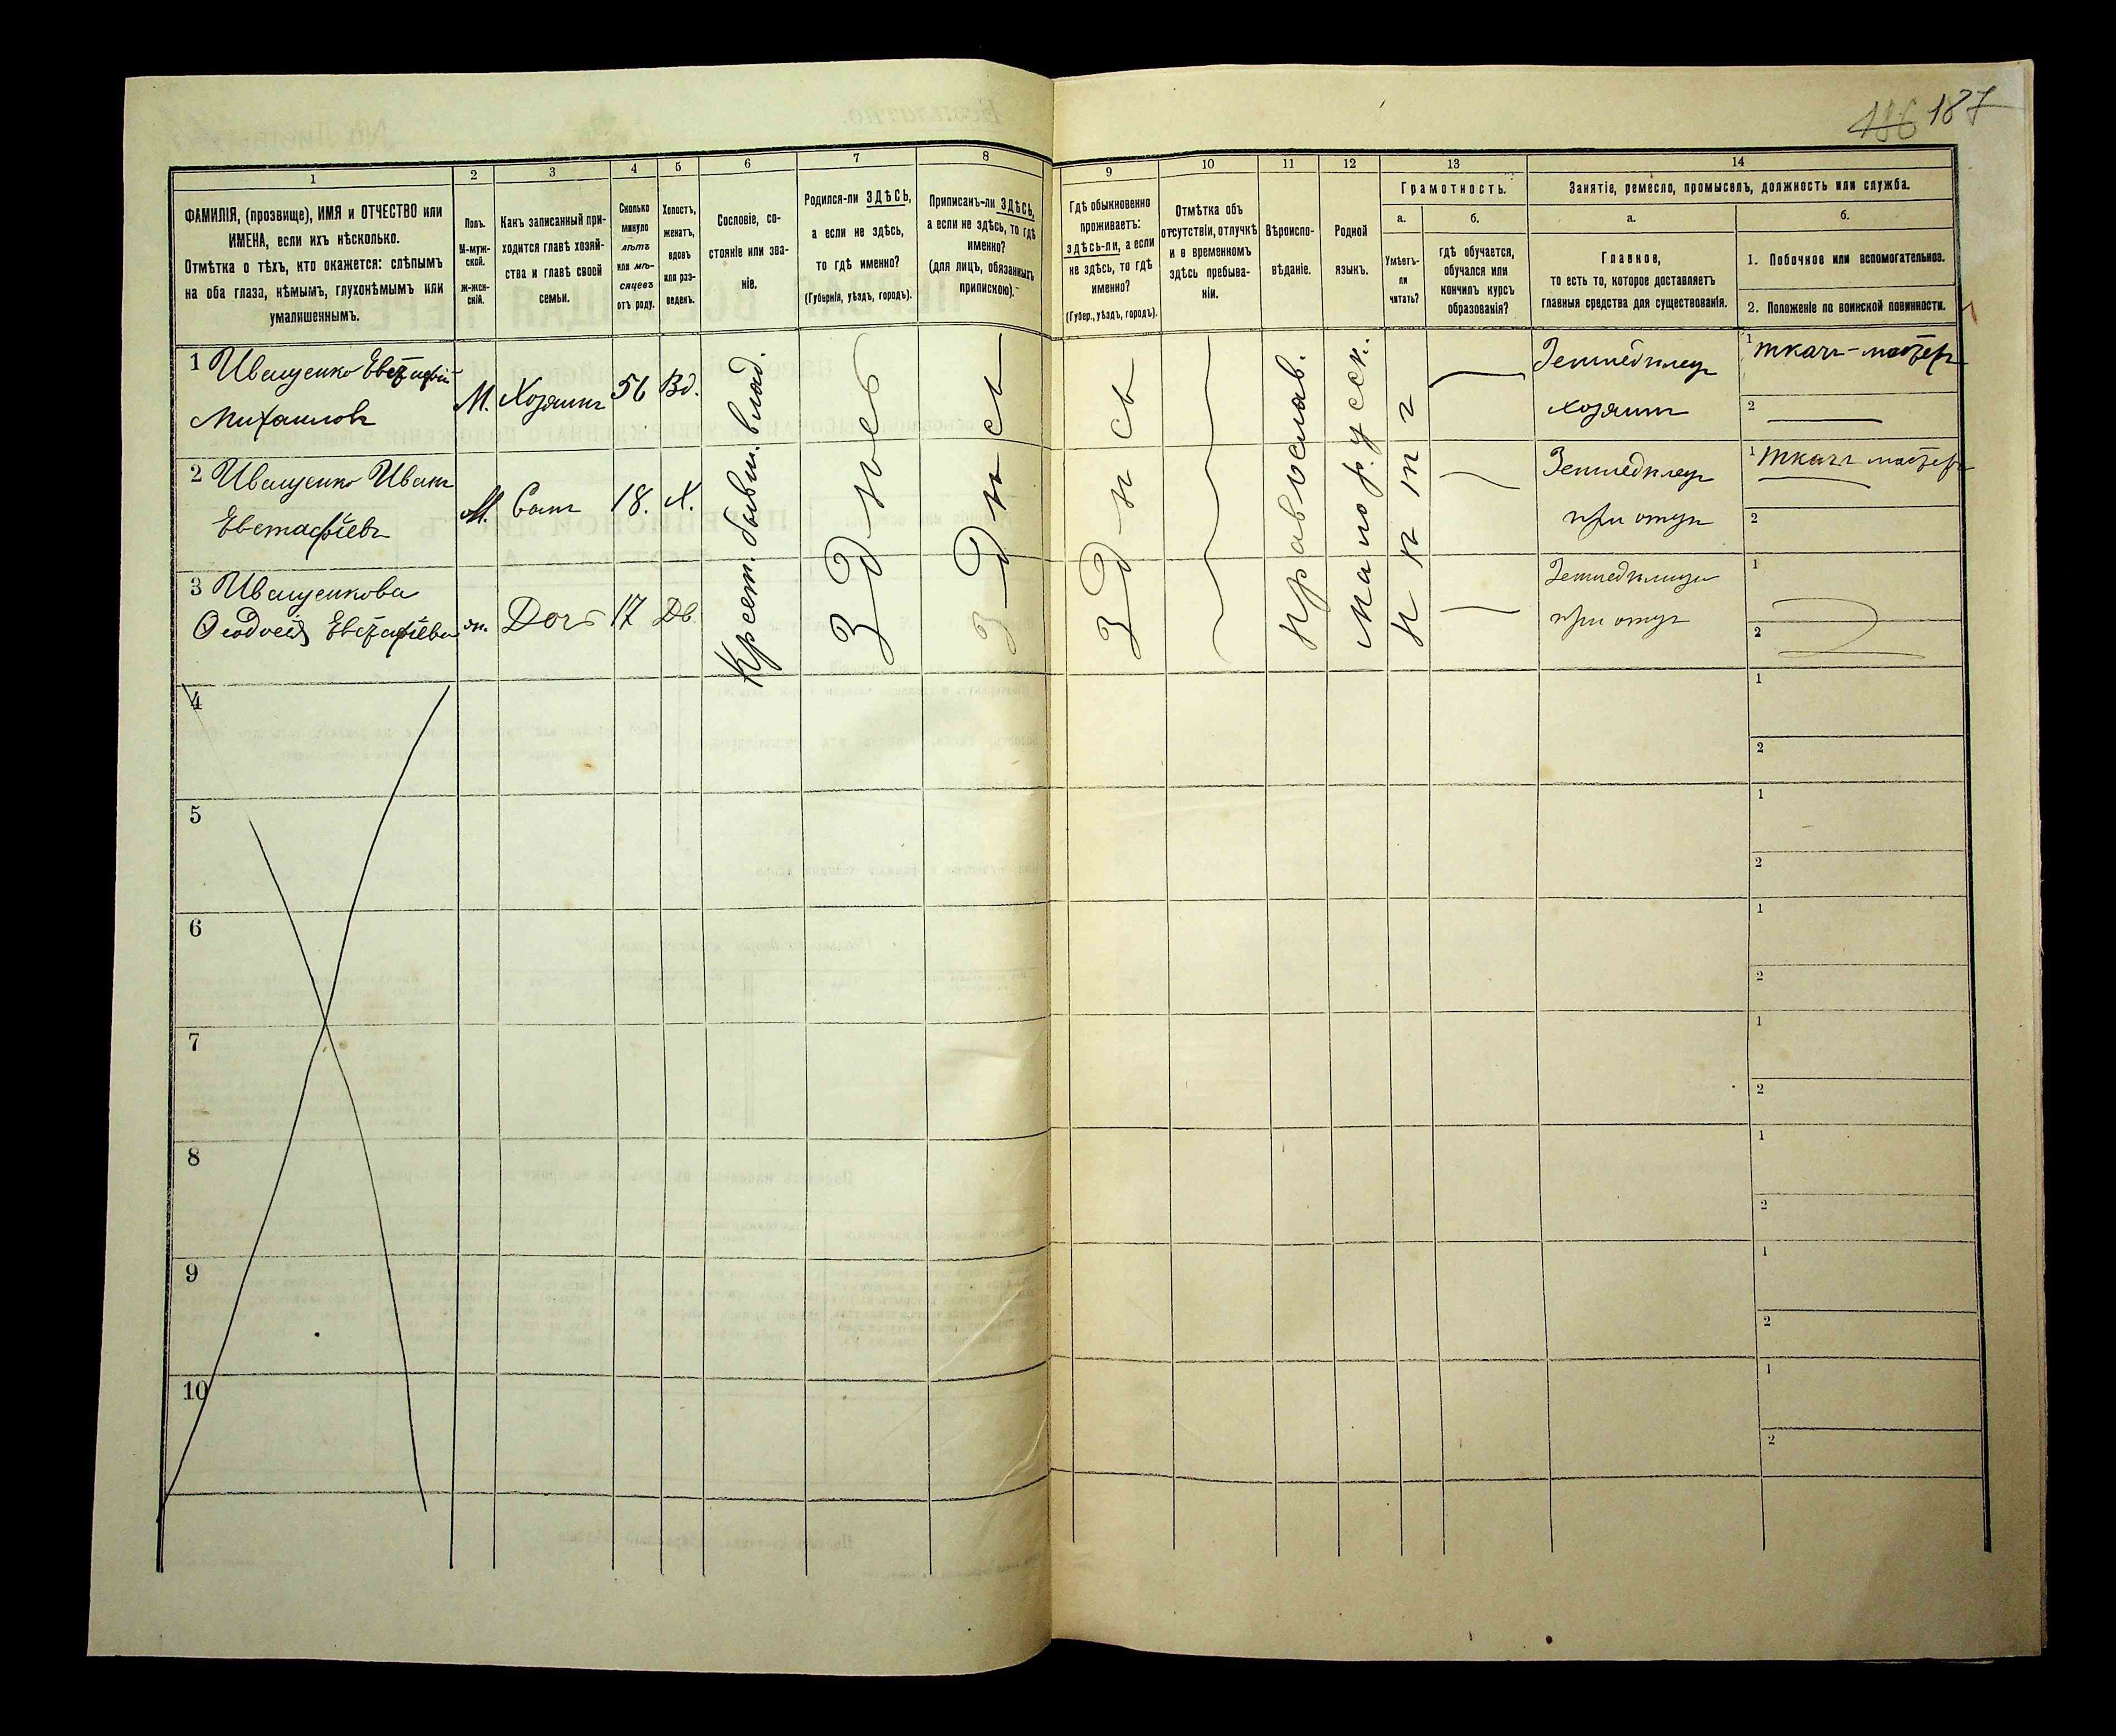 186 187
1
2
3
4
5
6
7
8
9
10
11
12
13
14
ФАМИЛІЯ, (прозвище), ИМЯ и ОТЧЕСТВО или
ИМЕНА, если ихъ нѣсколько.
Отмѣтка о тѣхъ, кто окажется: слѣпымъ
на оба глаза, нѣмымъ, глухонѣмымъ или
умалишеннымъ.
Полъ.
М-муж-
ской.
Ж-жен-
скій.
Какъ записанный при-
ходится главѣ хозяй-
ства и главѣ своей
семьи.
Сколько
минуло
лѣтъ
или мѣ-
сяцевъ
отъ роду.
Холостъ,
женатъ,
вдовъ
или раз-
веденъ.
Сословіе, со-
стояніе или зва-
ніе.
Родился-ли ЗДѢСЬ,
а если не здѣсь,
то гдѣ именно?
(Губернія, уѣздъ, городъ).
Приписанъ-ли ЗДѢСЬ,
а если не здѣсь, то гдѣ
именно?
(для лицъ, обязанныхъ
припискою).
Гдѣ обыкновенно
проживаетъ:
здѣсь-ли, а если
не здѣсь, то гдѣ
именно?
(Губер., уѣздъ, городъ).
Отмѣтка объ
отсутствіи, отлучкѣ
и о временномъ
здѣсь пребыва-
ніи.
Вѣроиспо-
вѣданіе.
Родной
языкъ.
Грамотность.
а.
Умѣетъ-
ли
читать?
б.
гдѣ обучается,
обучался или
кончилъ курсъ
образованія?
Занятіе, ремесло, промыселъ, должность или служба.
а.
Главное,
то есть то, которое доставляетъ
главныя средства для существованія.
б.
1. Побочное или вспомогательное.
2. Положеніе по воинской повинности.
1 Иващенко Евстафій
Михаиловъ
М.
Хозяинъ
56
Вд.
Крест. бывш. влад.
Здѣсь
Здѣсь
Здѣсь
Православ.
Малорусск.
Нѣтъ
Земледѣлецъ
хозяинъ
1 ткачъ-мастеръ
2
2 Иващенко Иванъ
Евстафіевъ
М.
Сынъ
18.
Х.
Земледѣлецъ
при отцѣ
1 ткачъ мастеръ
2
3 Иващенкова
Ѳеодосія Евстафіева
ж.
Дочь
17
Дв
Земледѣлица
при отцѣ
1
2
4
1
2
5
1
2
6
1
2
7
1
2
8
1
2
9
1
2
10
1
2